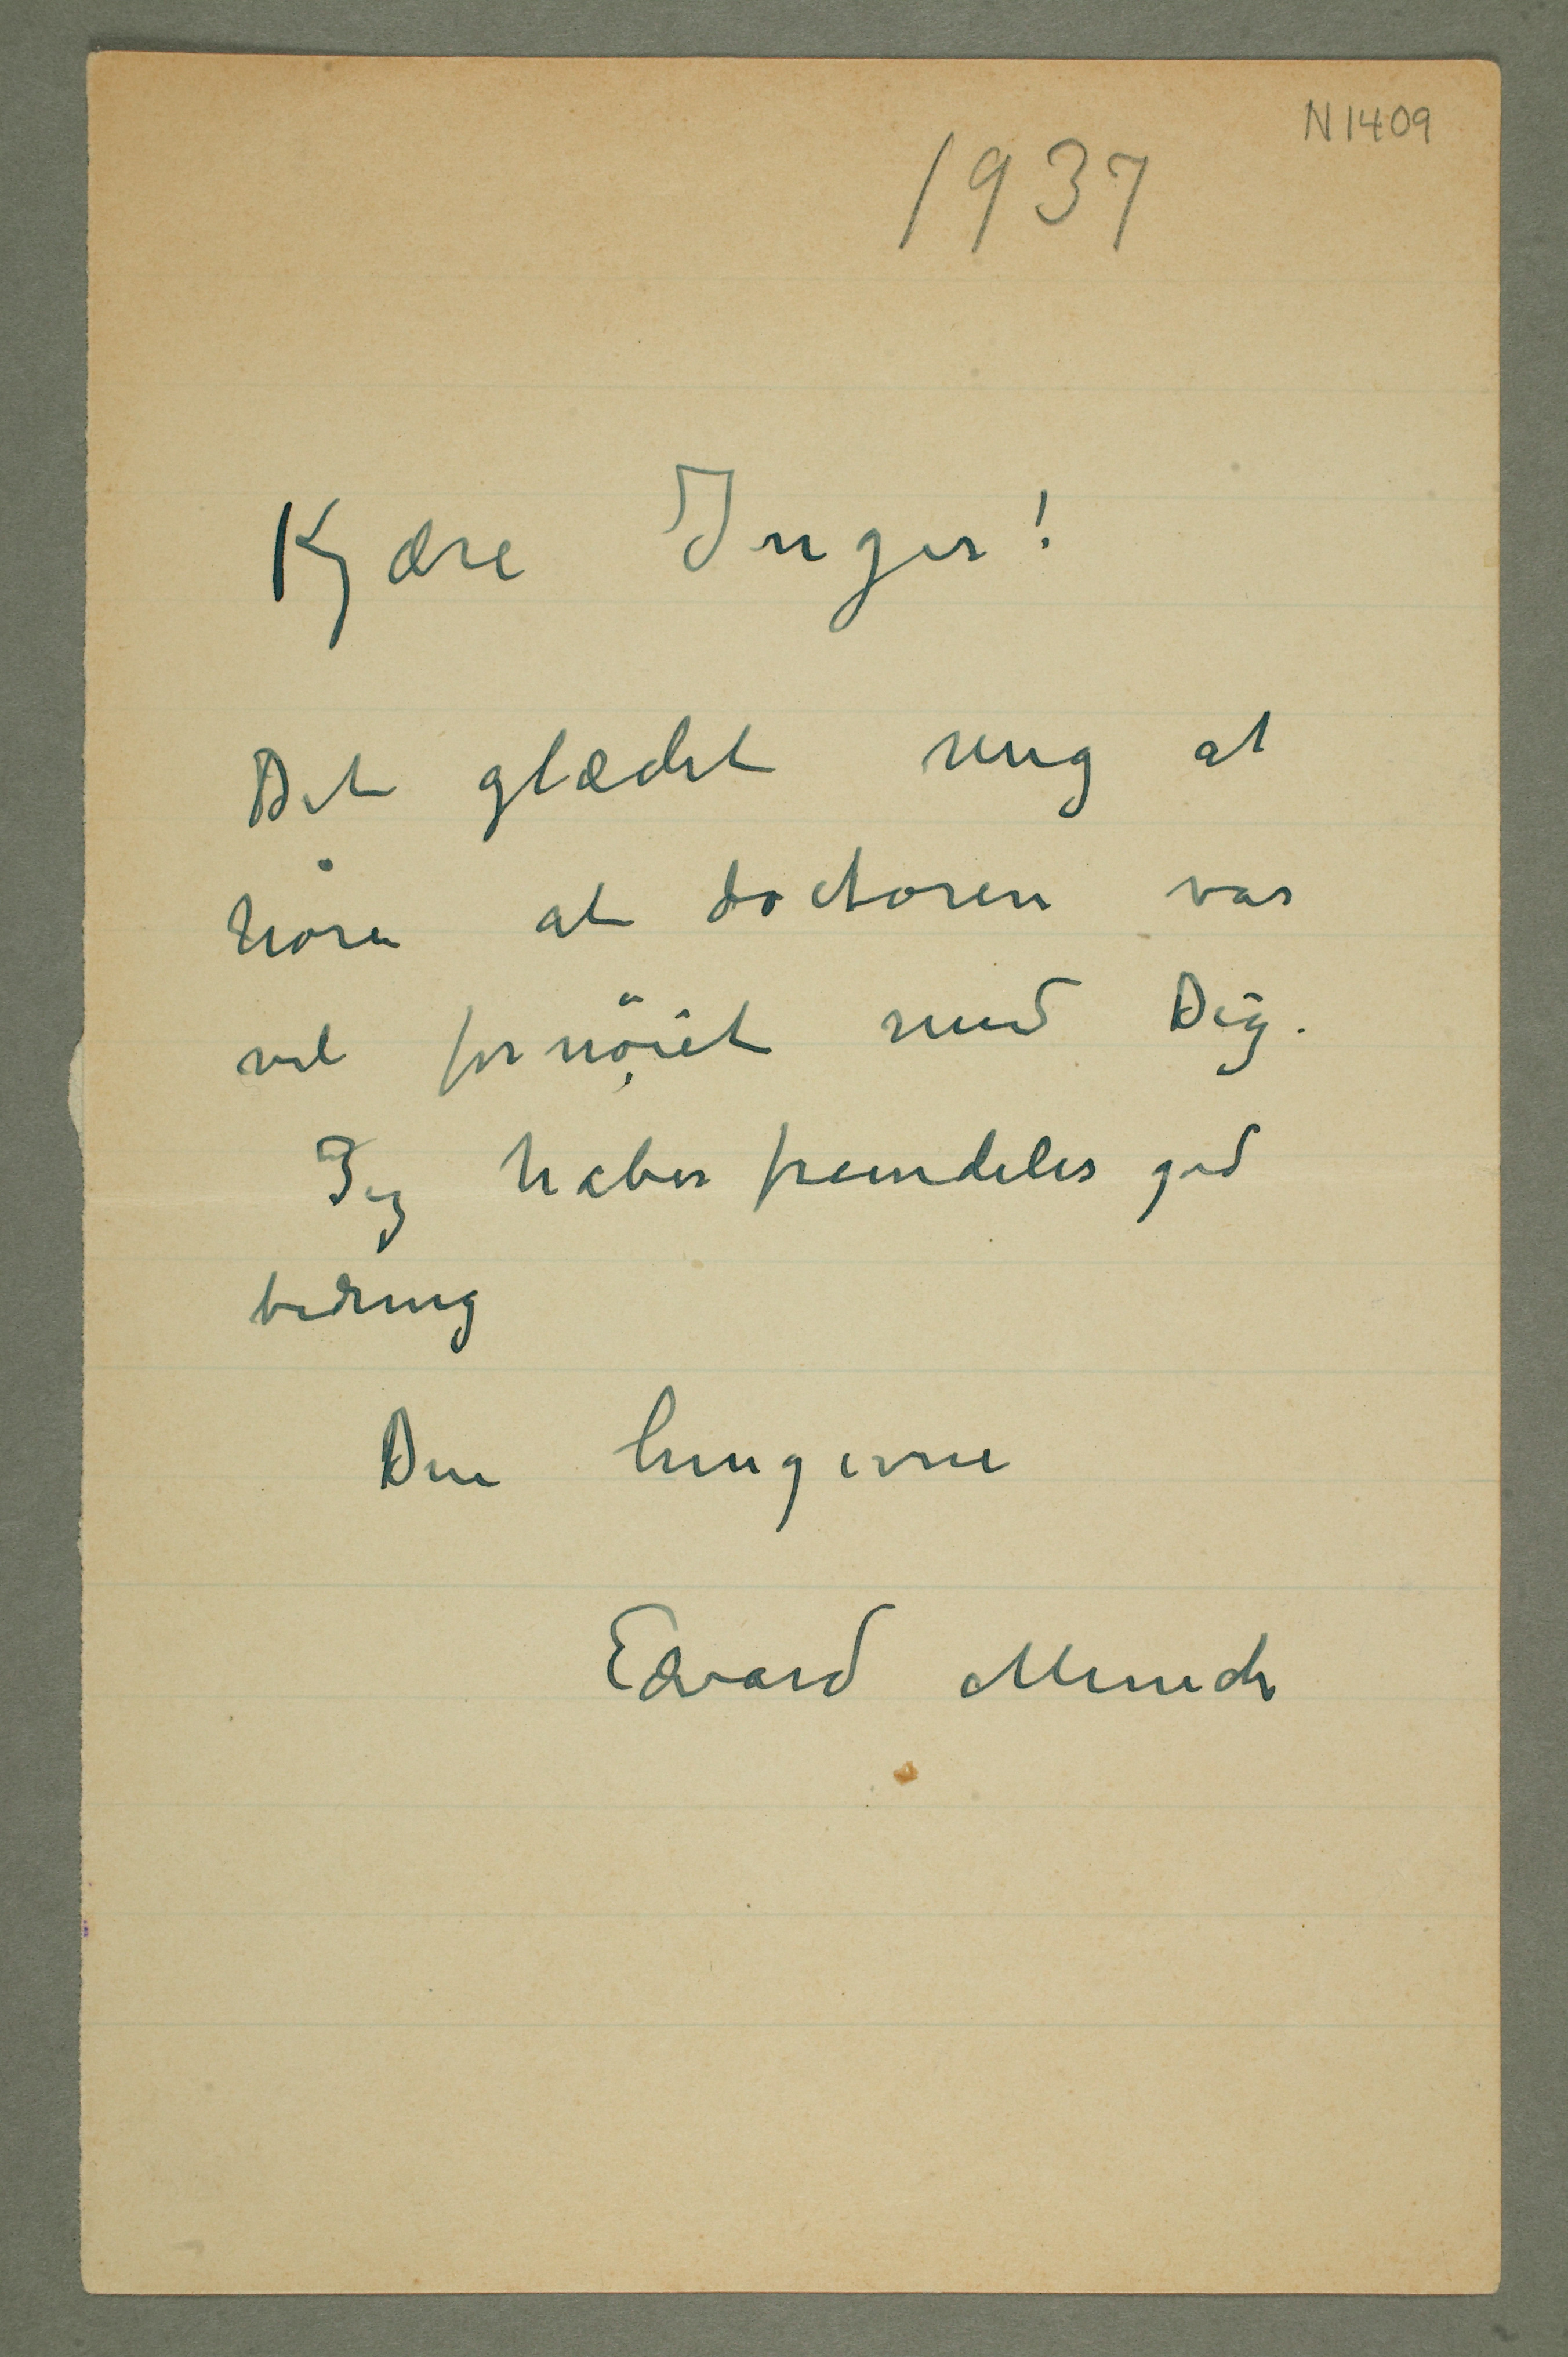 N1409
1937
Kjære Inger!
Det glædet mig at
høre at doctoren var
vel fornöiet med Dig.
Jeg håber fremdeles god
bedring
Din hengivne
Edvard Munch